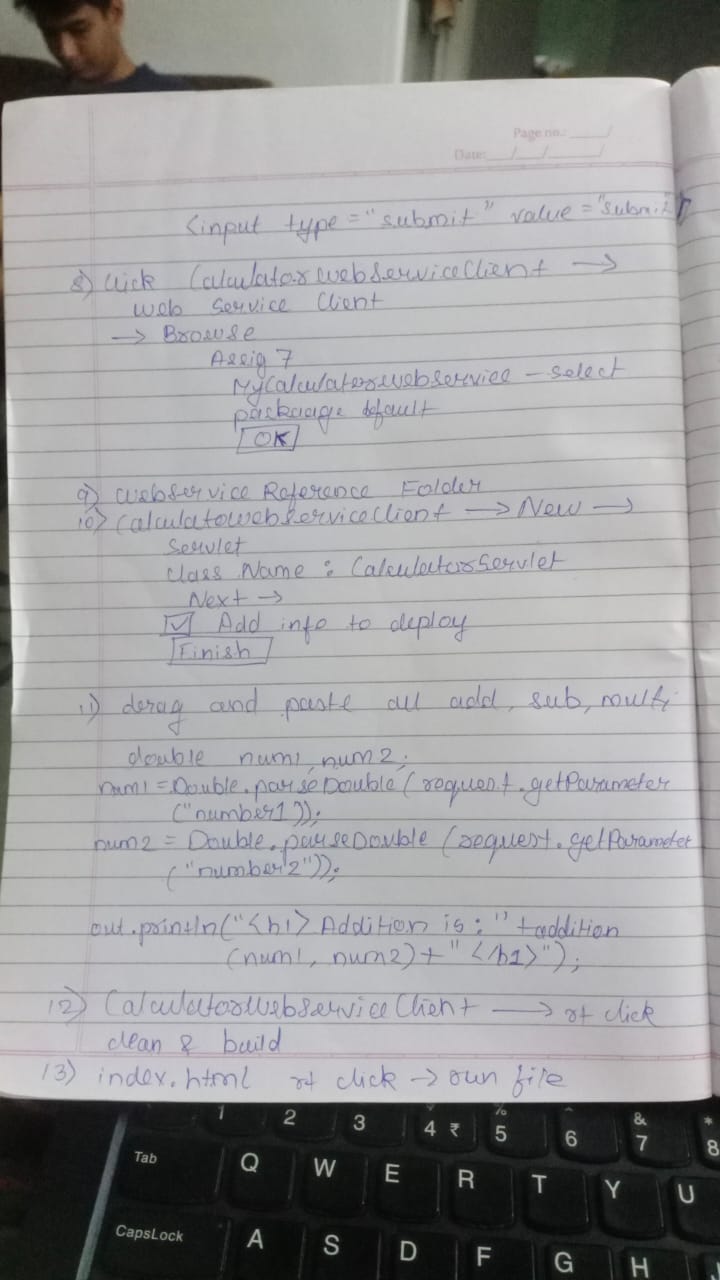 Page no.: ___/
Date: __/__/____/
<input type = "submit" value = "submit"
8) Click CalculatorwebServiceClient →
web service Client
→ Browse
Assig 7
MyCalculatorwebservice - select
packaage default
OK
9) webservice Reference Folder
10) CalculatowebserviceClient → New →
Servlet
class Name : CalculatorServlet
Next →
☑ Add info to deploy
Finish
11) drag and paste all add, sub, multi
double num1, num2;
num1 = Double.parseDouble(request.getParameter
("number1"));
num2 = Double.parseDouble (request.getParameter
("number2"));
out.println("<h1> Addition is : " +addition
(num1, num2) + " </h1>");
12) CalculatorWebServiceClient → rt click
clean & build
13) index.html rt click → run file
1 2 3 4 ₹ % 5 ^ 6 & 7 * 8
Tab Q W E R T Y U
CapsLock A S D F G H